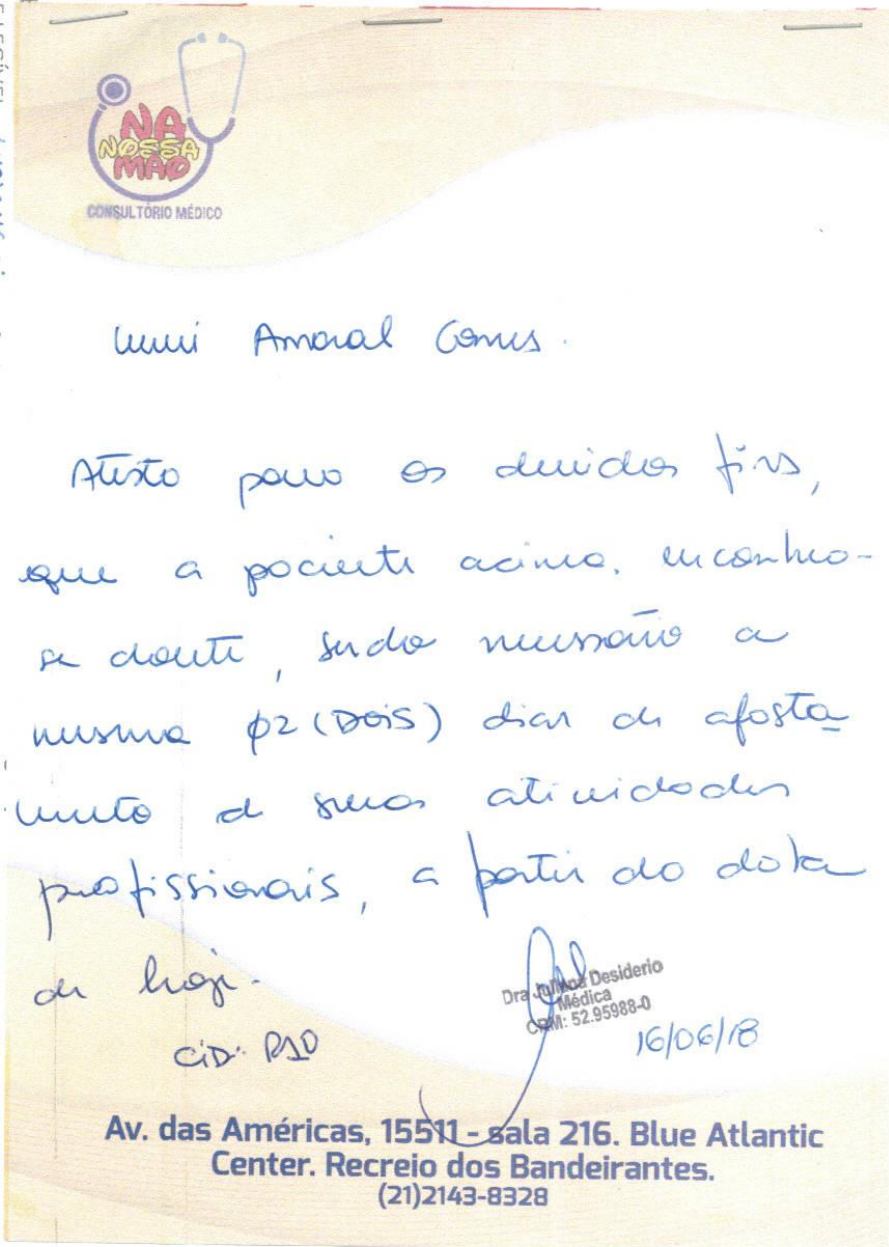 NA
NOSSA
MÃO
CONSULTÓRIO MÉDICO
Amaral Gomes.
Atesto para os devidos fins,
que a paciente acima, encontra-
se doente, sendo necessário a
mesma 02 (DOIS) dias de afasta
mento de suas atividades
profissionais, a partir da data
de hoje.
Dra Desiderio
Médica
CRM: 52.95988-0
CID: R10
16/06/18
Av. das Américas, 15511 - sala 216. Blue Atlantic
Center. Recreio dos Bandeirantes.
(21)2143-8328